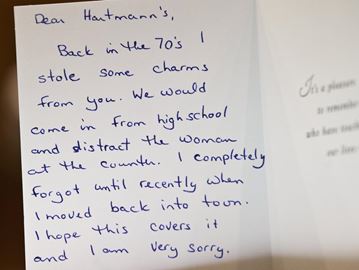 Dear Hartmann's,
Back in the 70's I
stole some charms
from you. We would
come in from high school
and distract the woman
at the counter. I completely
forgot until recently when
I moved back into town.
I hope this covers it
and I am very sorry.
It's a pleasure
to remember
who have touched
our lives